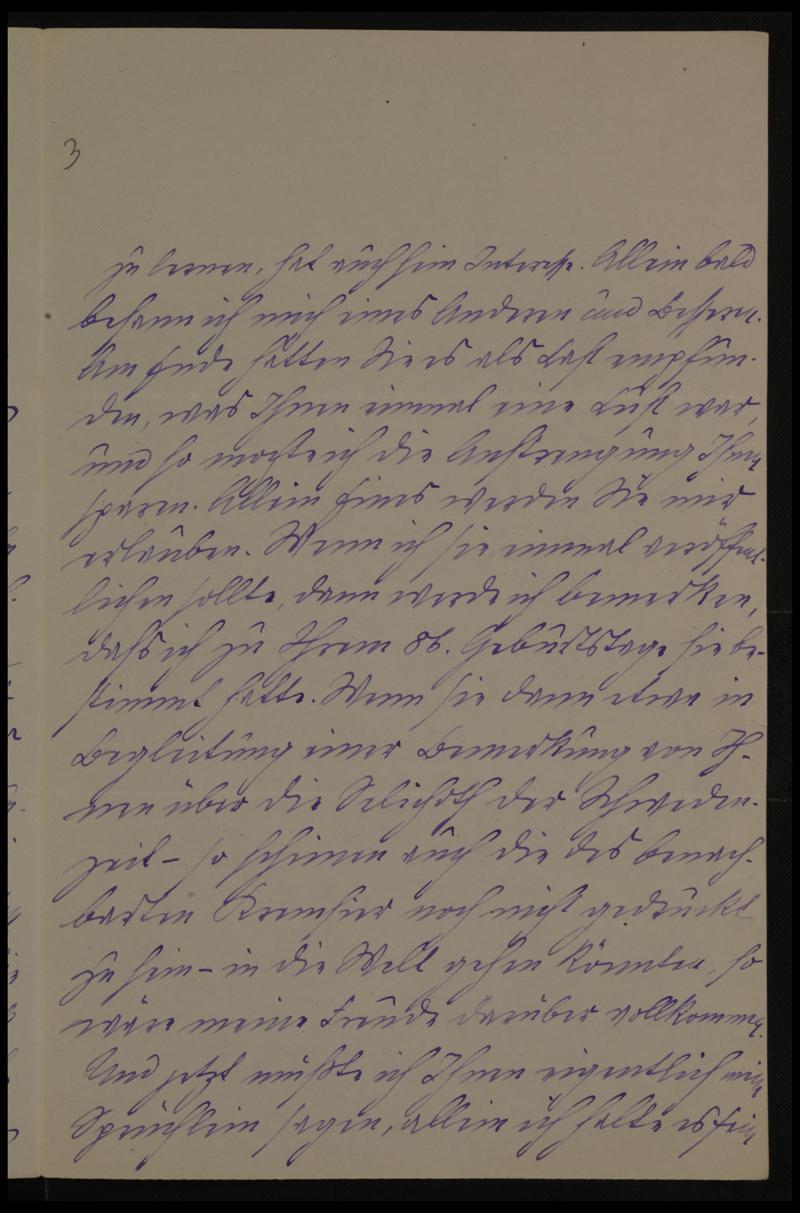 3
zu lernen, hat auch sein Interesse. Allein bald
besann ich mich eines Anderen und Bessern.
Am Ende hätten Sie es als Last empfun-
den, was Ihnen einmal eine Lust war,
und so mochte ich die Anstrengung Ihnen
sparen. Allein Eines werden Sie mir
erlauben. Wenn ich sie einmal veröffent-
lichen sollte, dann werde ich bemerken,
dass ich zu Ihrem 86. Geburtstage sie be-
stimmt hatte. Wenn sie dann etwa in
Begleitung einer Bemerkung von Ih-
nen über die Selichoth der Schweden-
zeit – so scheinen auch die des benach-
barten Kremsier noch nicht gedruckt
zu sein – in die Welt gehen könnten, so
wäre meine Freude darüber vollkommen.
Und jetzt müßte ich Ihnen eigentlich mein
Sprüchlein sagen, allein ich halte es für